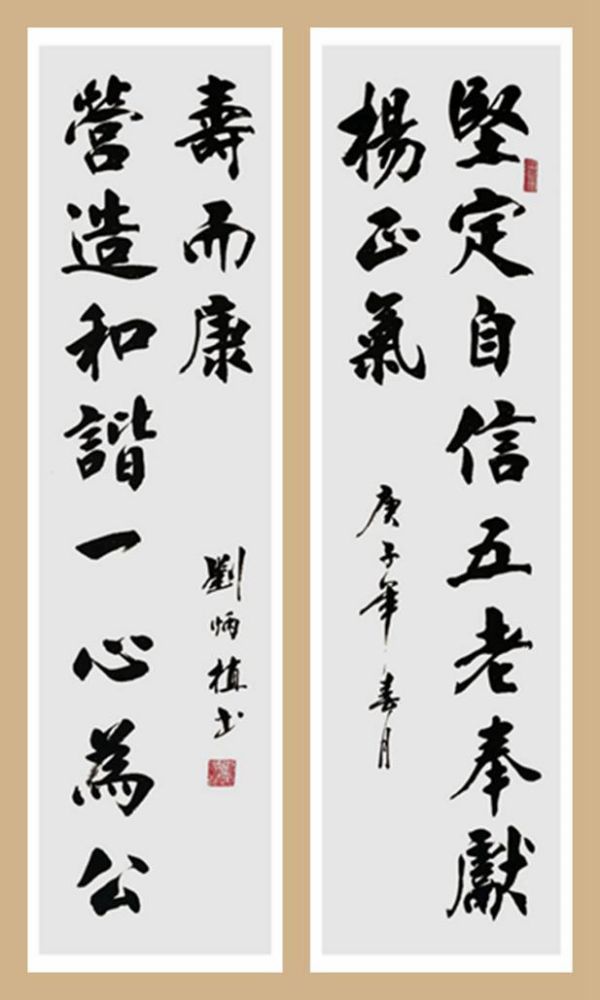 堅定自信五老奉獻
楊正氣
庚子年春月
營造和諧一心為公
壽而康
劉炳植書